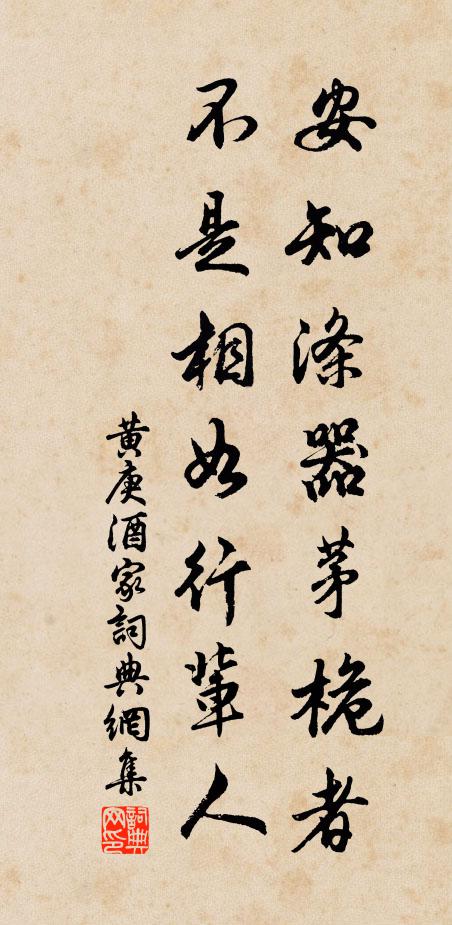 安知涤器茅檐者
不是相如行辈人
黄庚酒家詞典網集
詞典网印